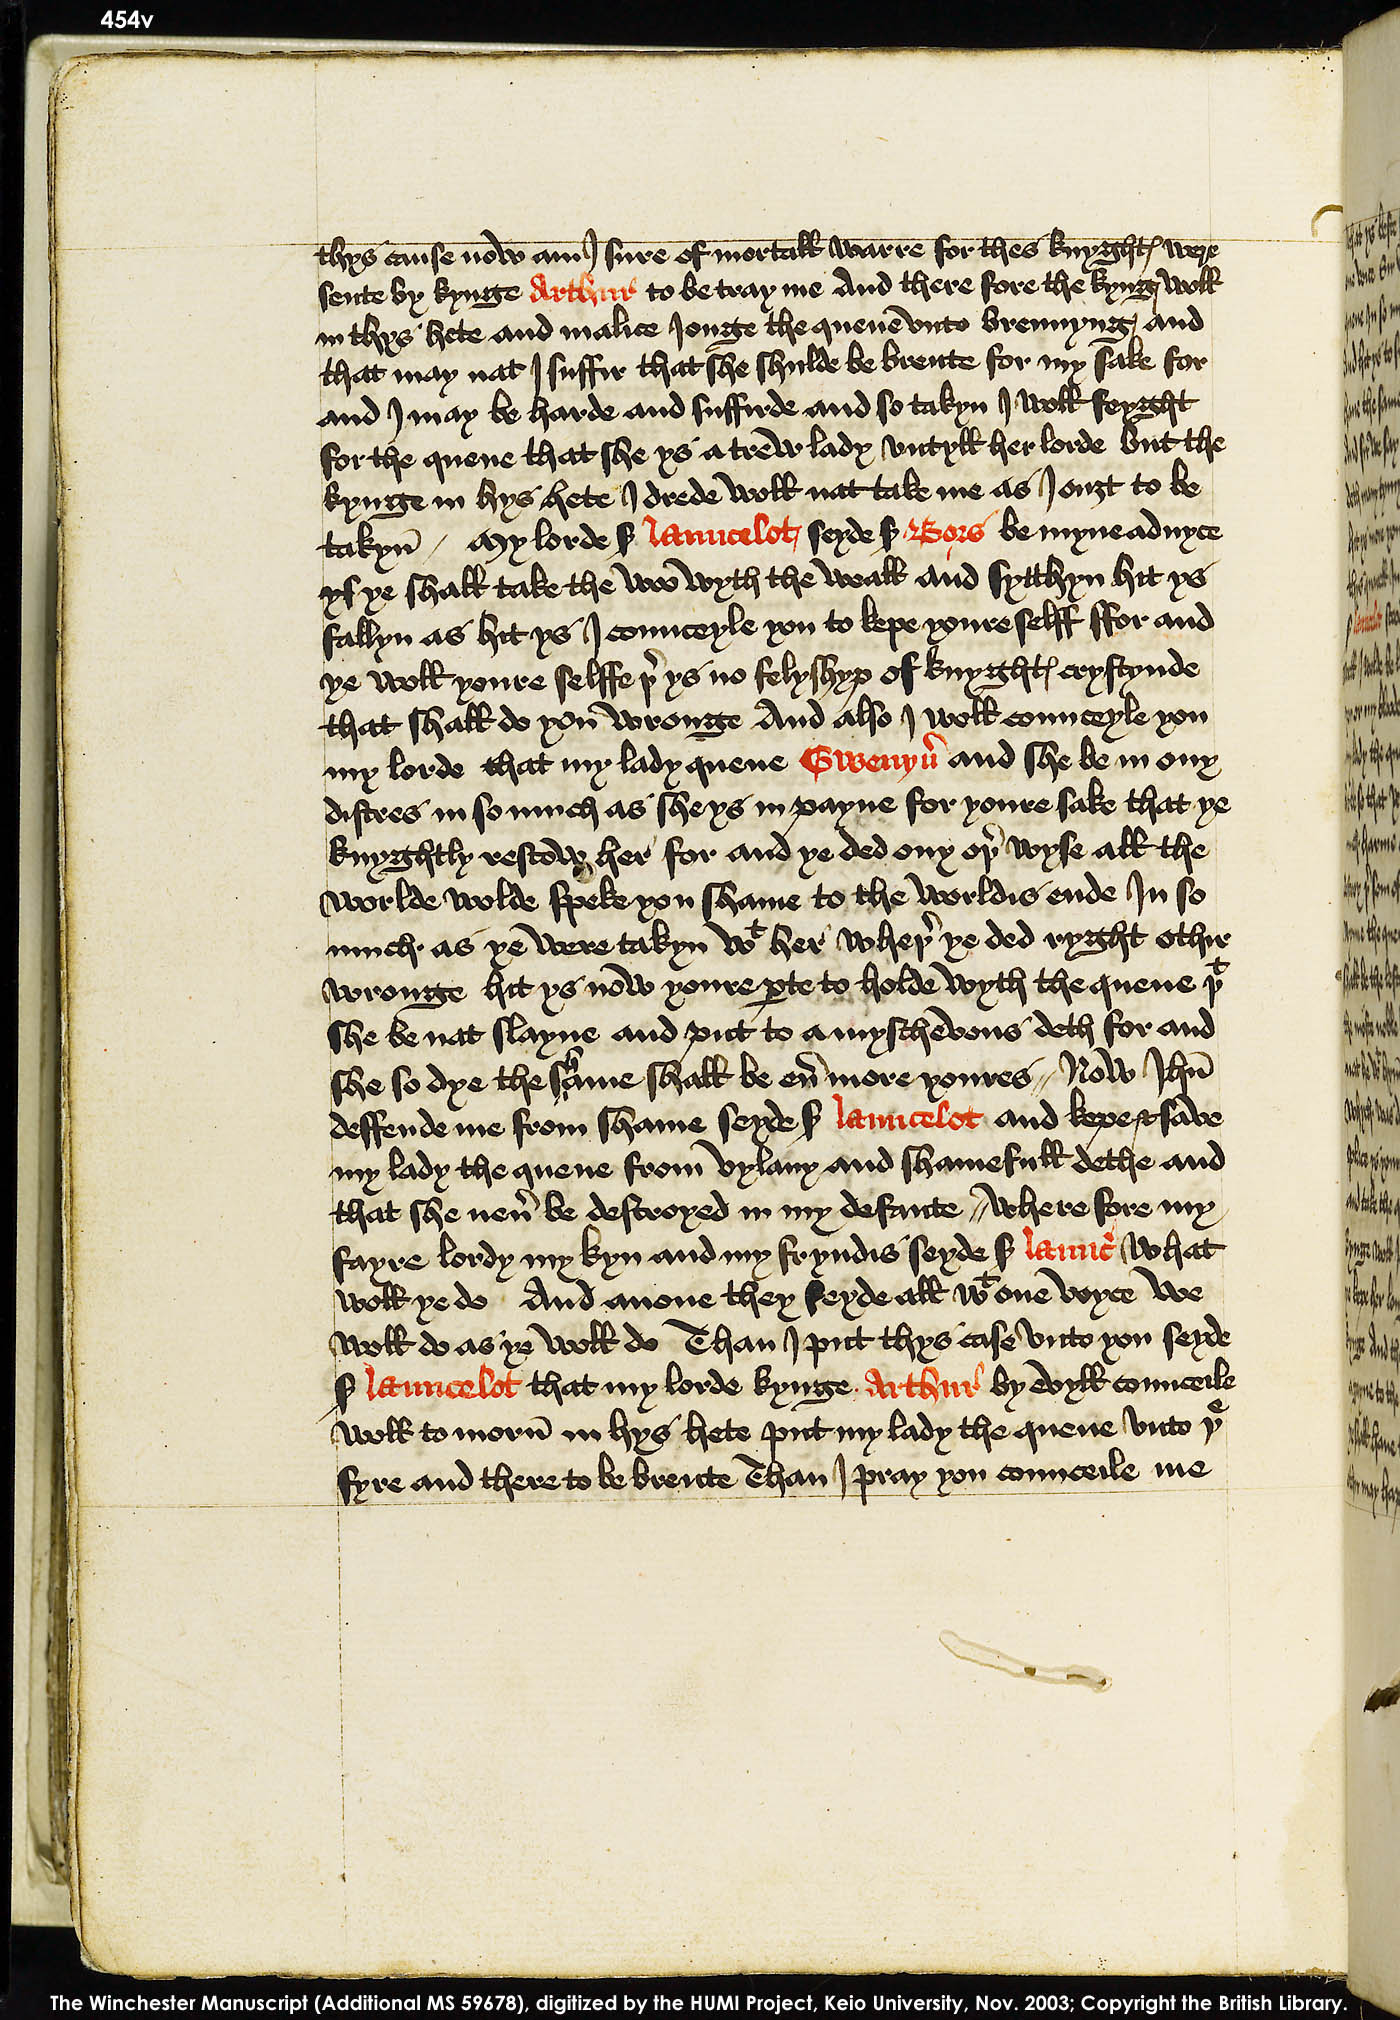 454v
thys cause now am I sure of mortall warre for thes knyghtꝭ were
sente by kynge Arthur to be tray me And there fore the kyngꝭ woll
in thys hete and malice Jouge the quene vnto brennyngꝭ and
that may nat I suffir that she shulde be brente for my sake for
and I may be harde and suffirde and so takyn I woll feyght
for the quene that she ys a trew lady vntyll her lorde but the
kynge in hys hete I drede woll nat take me as I ouȝt to be
takyn̄ / My lorde sꝭ launcelot seyde sꝭ Bors be myne aduyce
yf ye shall take the woo wyth the weall and sytthyn hit ys
fallyn as hit ys I counceyle you to kepe youre selff ffor and
ye woll youre selffe þʳ ys no felyshyp of knyghtꝭ crystynde
that shall do you wronge And also I woll counceyle you
my lorde that my lady quene Gwenyu̾ and she be in ony
distres in so much as she ys in payne for youre sake that ye
knyghtly rescow her for and ye ded ony oþʳ wyse all the
worlde wolde speke you shame to the worldis ende In so
much as ye were takyn wᵗ her wheþʳ ye ded ryght othir
wronge hit ys now youre ꝑte to holde wyth the quene þᵗ
she be nat slayne and put to a myschevous deth for and
she so dye the shame shall be eu̾ more youres // Now Ihū
deffende me from shame seyde sꝭ launcelot and kepe & save
my lady the quene from vylany and shamefull dethe and
that she neu̾ be destroyed in my defaute // where fore my
fayre lordy my kyn and my fryndis seyde sꝭ launc̾ what
woll ye do And anone they seyde all wᵗ one voyce we
woll do as ye woll do Than I put thys case vnto you seyde
sꝭ launcelot that my lorde kynge Arthur by evyll counceile
woll to morn̄ in hys hete put my lady the quene vnto þᵉ
fyre and there to be brente Than I pray you counceile me
The Winchester Manuscript (Additional MS 59678), digitized by the HUMI Project, Keio University, Nov. 2003; Copyright the British Library.